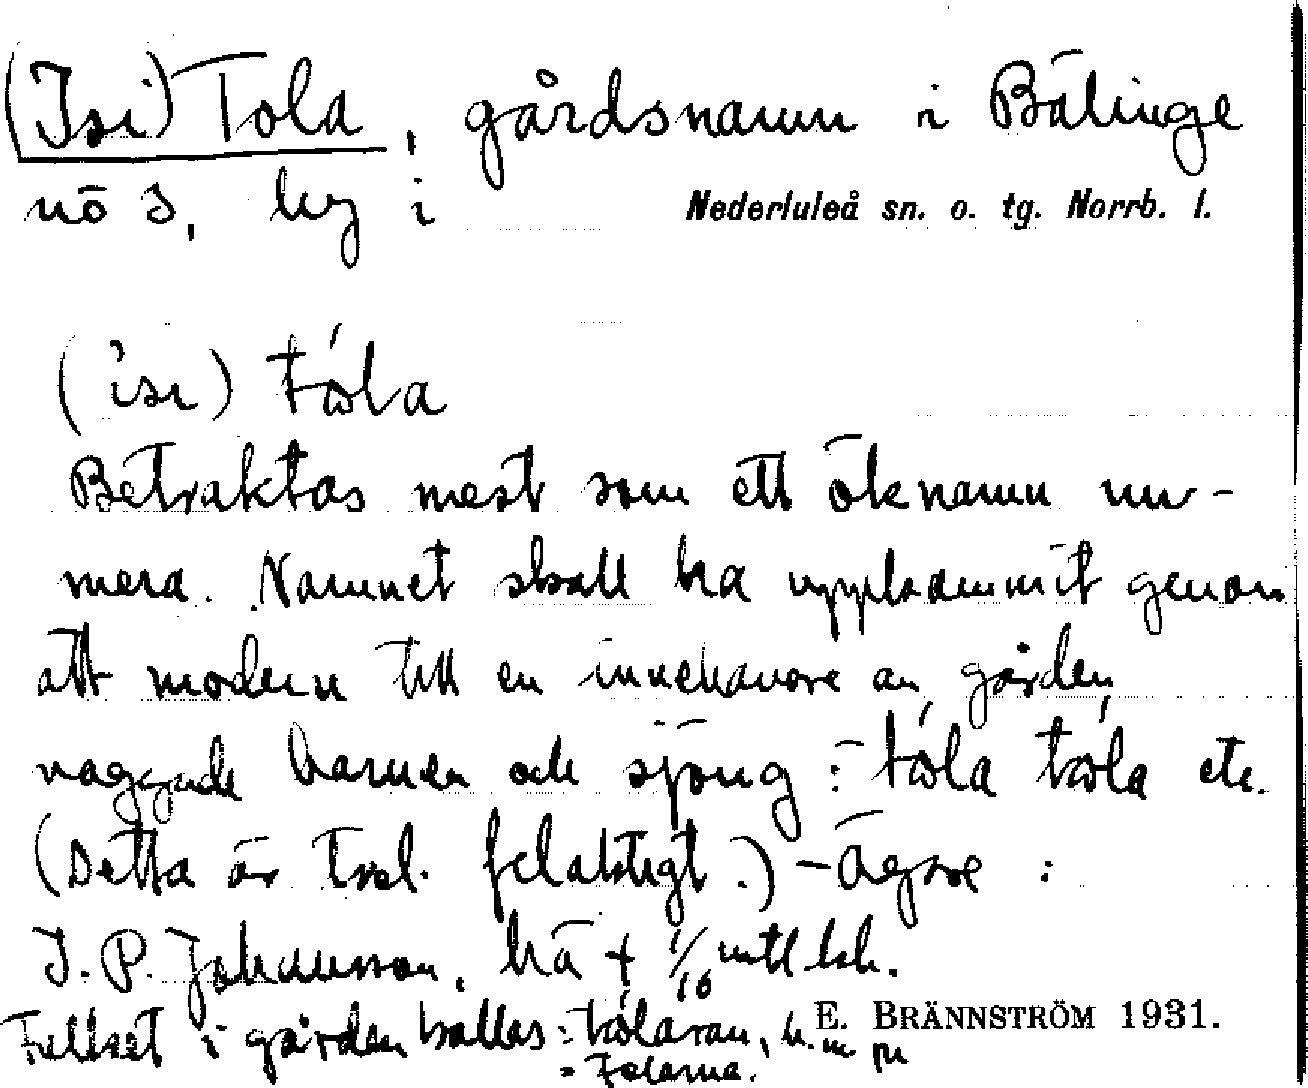 (Isi) Tola, gårdsnamn i Bälinge
nö S, by i Nederluleå sn. o. tg. Norrb. l.
(isi) tola
Betraktas mest som ett öknamn nu-
mera. Namnet skall ha uppkommit genom
att modern till en innehavare av gården
vaggade barnen och sjöng: tola tola etc.
(Detta är trol. felaktigt.) - Ägare:
J. P. Johansson, 1/16 mtl
E. BRÄNNSTRÖM 1931.
Folket i gården kallas: tolaran,
= Tolarna.